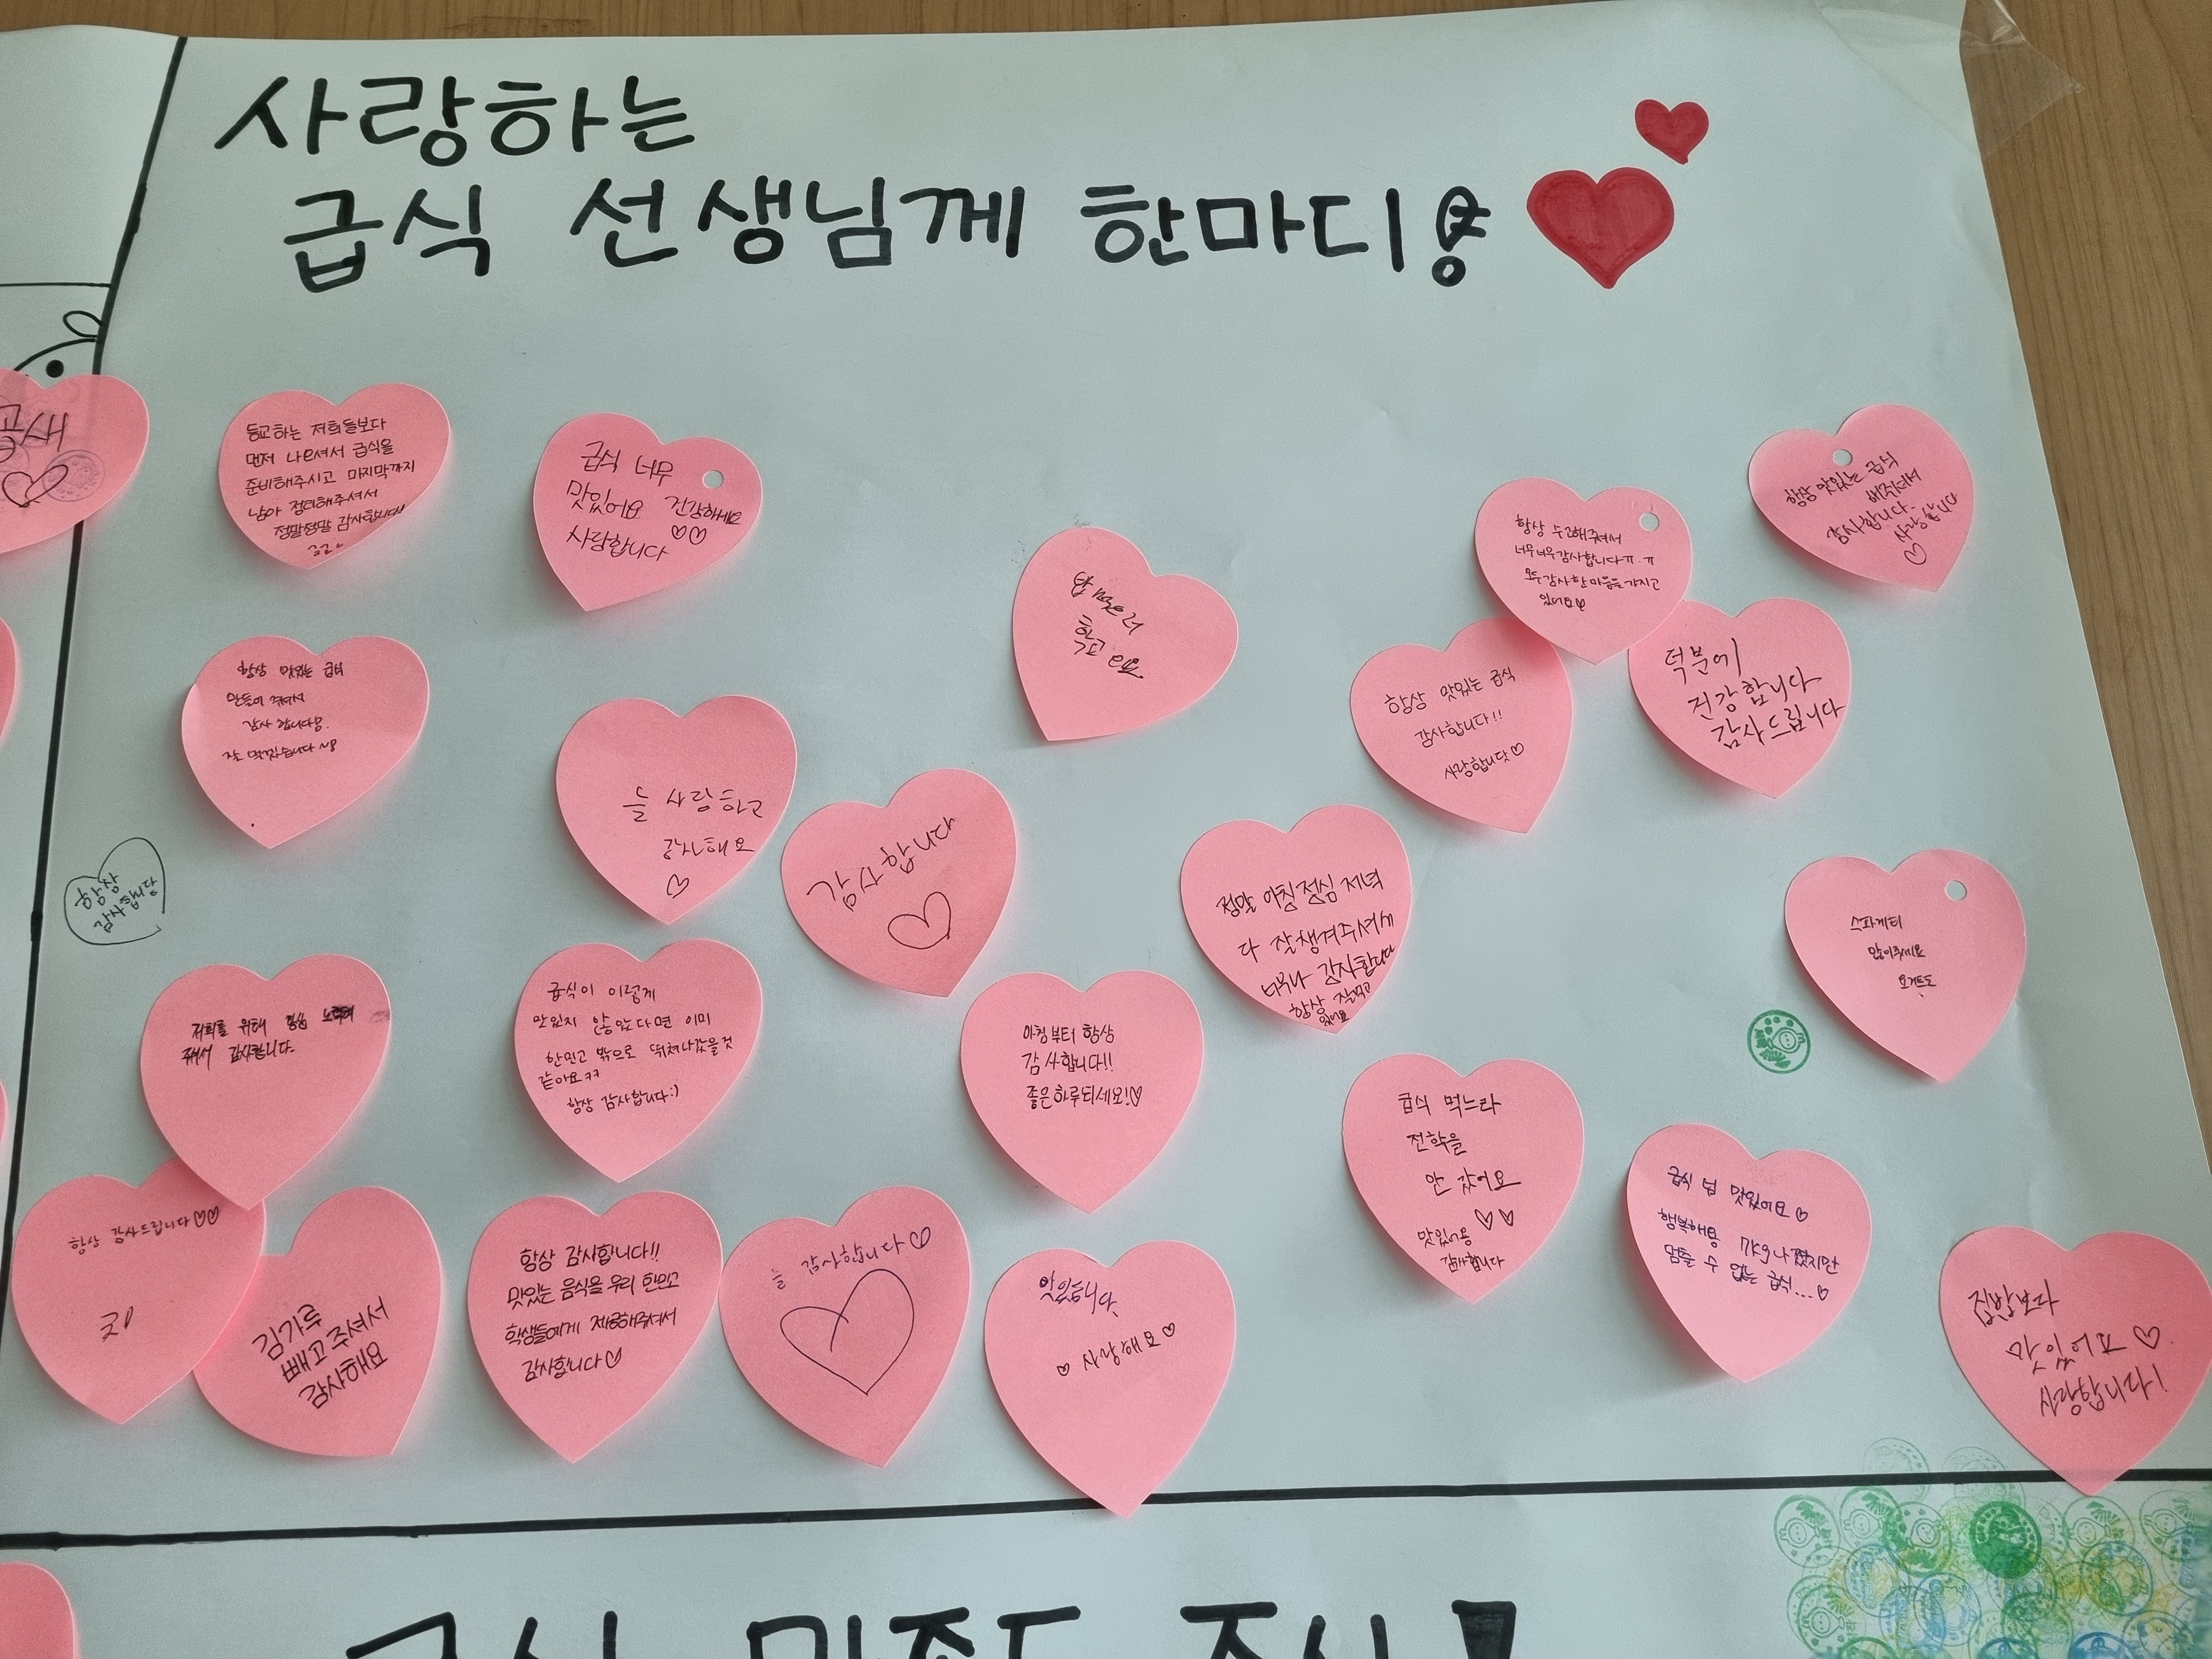 사랑하는
급식 선생님께 한마디!
등교하는 저희들보다
먼저 나오셔서 급식을
준비해주시고 마지막까지
남아 정리해주셔서
정말정말 감사합니다!
급식 너무
맛있어요 건강하세요
사랑합니다 ♡♡
밥 먹으러
학교 와요.
항상 수고해주셔서
너무너무감사합니다ㅠ.ㅠ
모두감사한마음을가지고
있어요♡
항상 맛있는 급식
해주셔서
감사합니다.
사랑합니다
♡
항상 맛있는 급식
만들어 주셔서
감사 합니다!
잘 먹겠습니다~!
늘 사랑하고
감사해요
♡
감사합니다
♡
항상 맛있는 급식
감사합니다!!
사랑합니닷♡
덕분에
건강합니다
감사드립니다
항상
감사합니당
정말 아침점심 저녁
다 잘챙겨주셔서
너무나 감사합니다
항상 잘먹고
있어요
스파게티
많이주세요
요거트도
저희를 위해 항상 노력해
주셔서 감사합니다.
급식이 이렇게
맛있지 않았다면 이미
한민고 밖으로 뛰쳐나갔을것
같아요ㅋㅋ
항상 감사합니다:)
아침부터 항상
감사합니다!!
좋은하루되세요!♡
급식 먹느라
전학을
안 갔어요
♡♡
맛있어용
감사합니다
급식 넘 맛있어요♡
행복해용 7kg나 쪘지만
멈출 수 없는 급식...♡
항상 감사드립니다♡♡
김가루
빼고주셔서
감사해요
항상 감사합니다!!
맛있는 음식을 우리 한민고
학생들에게 제공해주셔서
감사합니다♡
늘 감사합니다♡
맛있습니다.
♡ 사랑해요♡
집밥보다
맛있어요♡
사랑합니다!